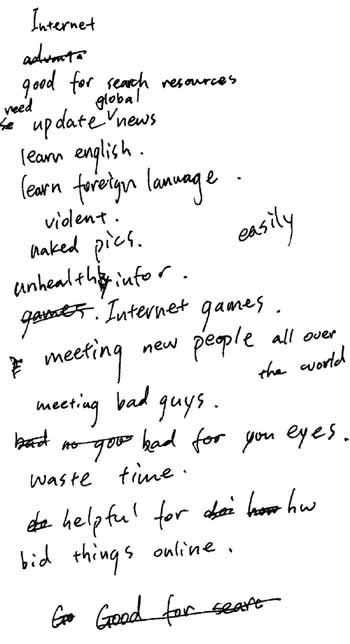 Internet
advanta
good for search resources
need global
update news
learn english.
learn foreign lanuage.
violent.
naked pics. easily
unhealthy infor.
games. Internet games.
meeting new people all over
the world
meeting bad guys.
bad no goo bad for you eyes.
waste time.
helpful for how hw
bid things online.
Go Good for searc